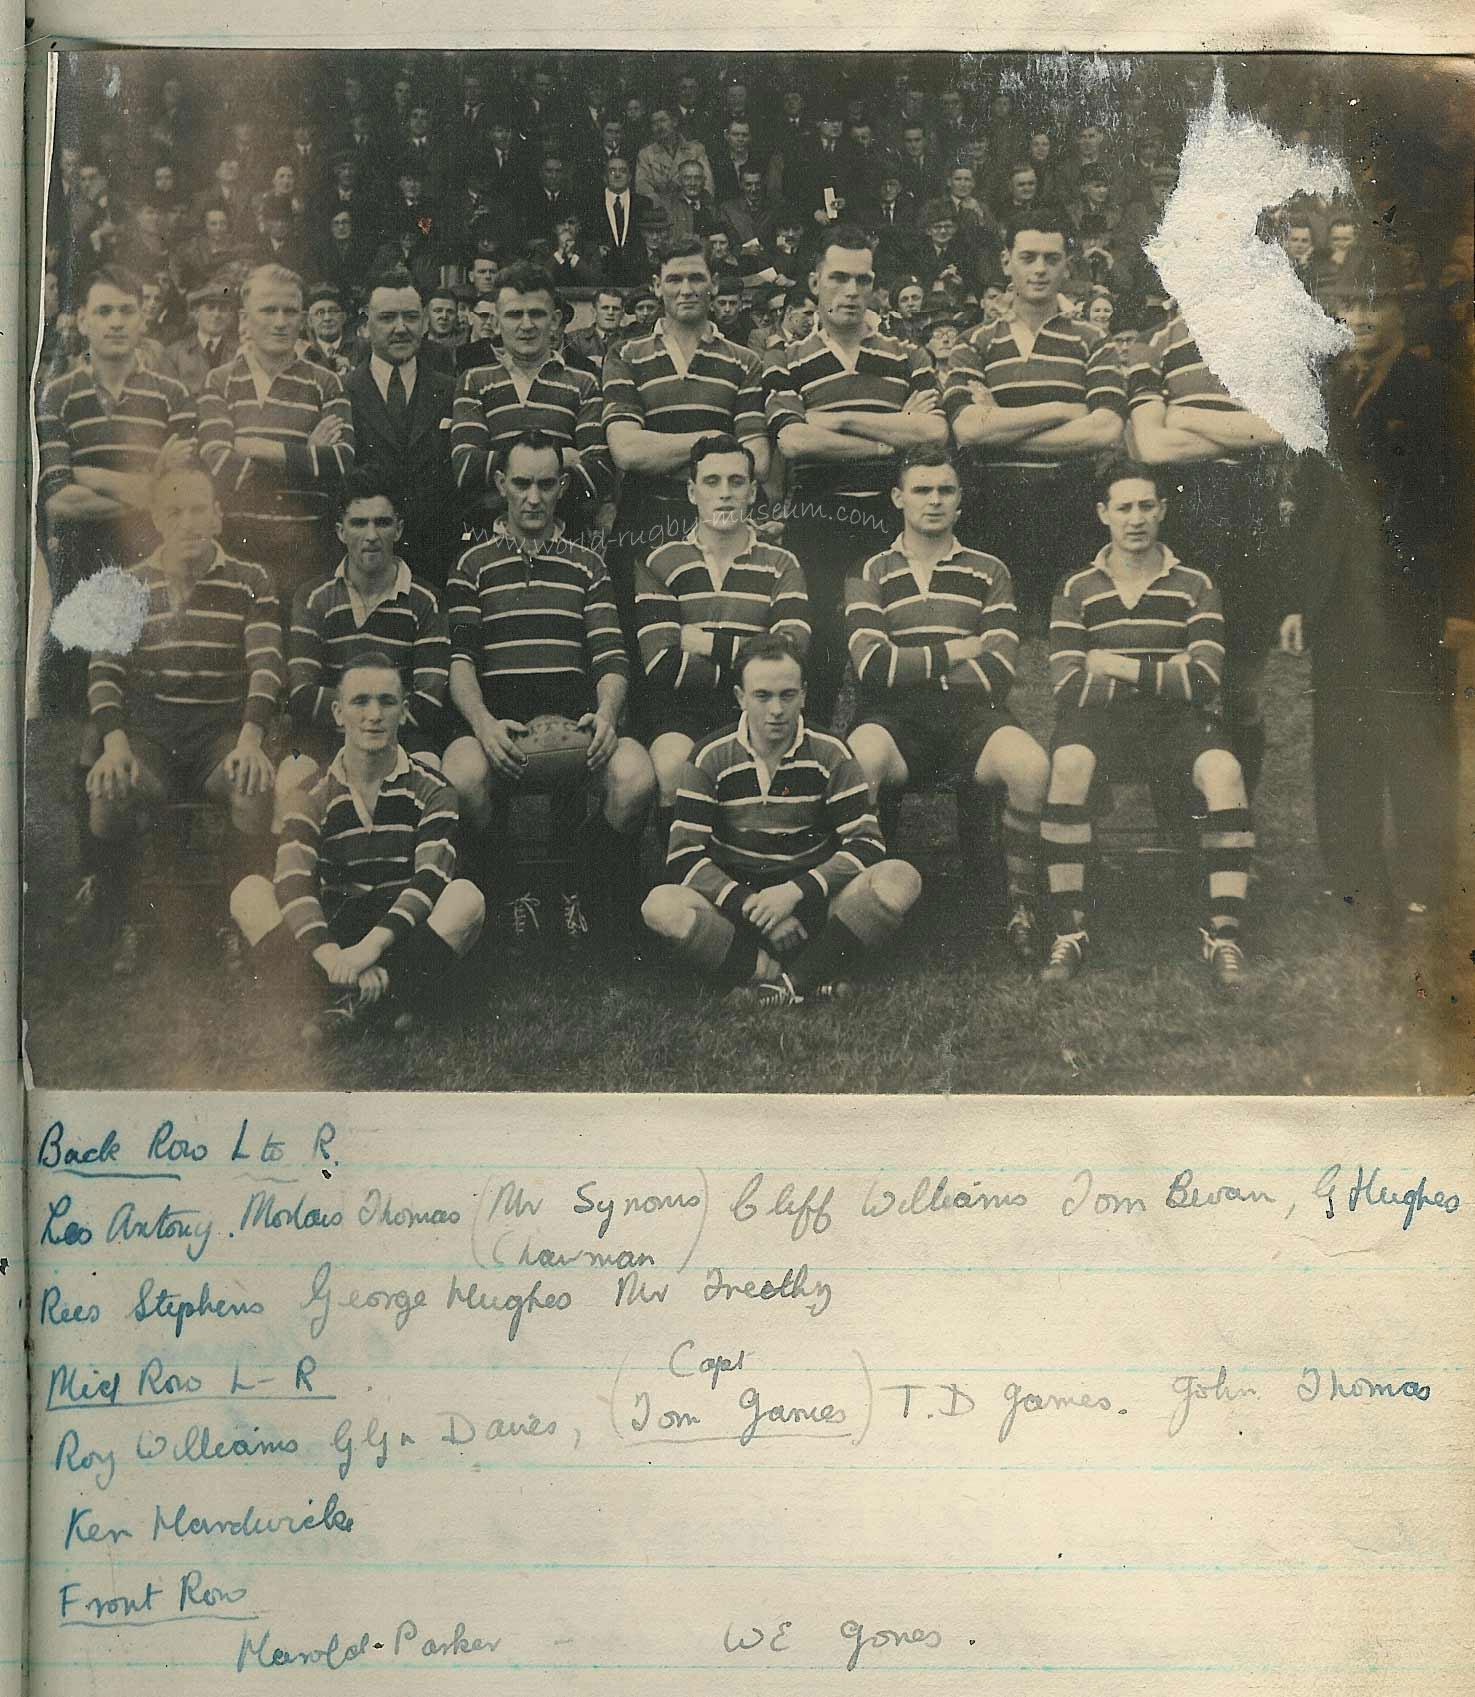 www.world-rugby-museum.com
Back Row L to R.
Leo Antony. Morlais Thomas (Mr Synons) Cliff Williams Tom Bevan, G Hughes
(Chairman)
Rees Stephens George Hughes Mr Trethy
Mid Row L-R
Capt
Roy Williams Glyn Davies, (Tom James) T.D James. John Thomas
Ken Hardwicke
Front Row
Harold Parker - W E Jones.